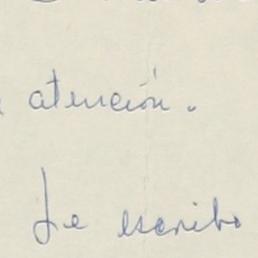 atención.
Le escribo